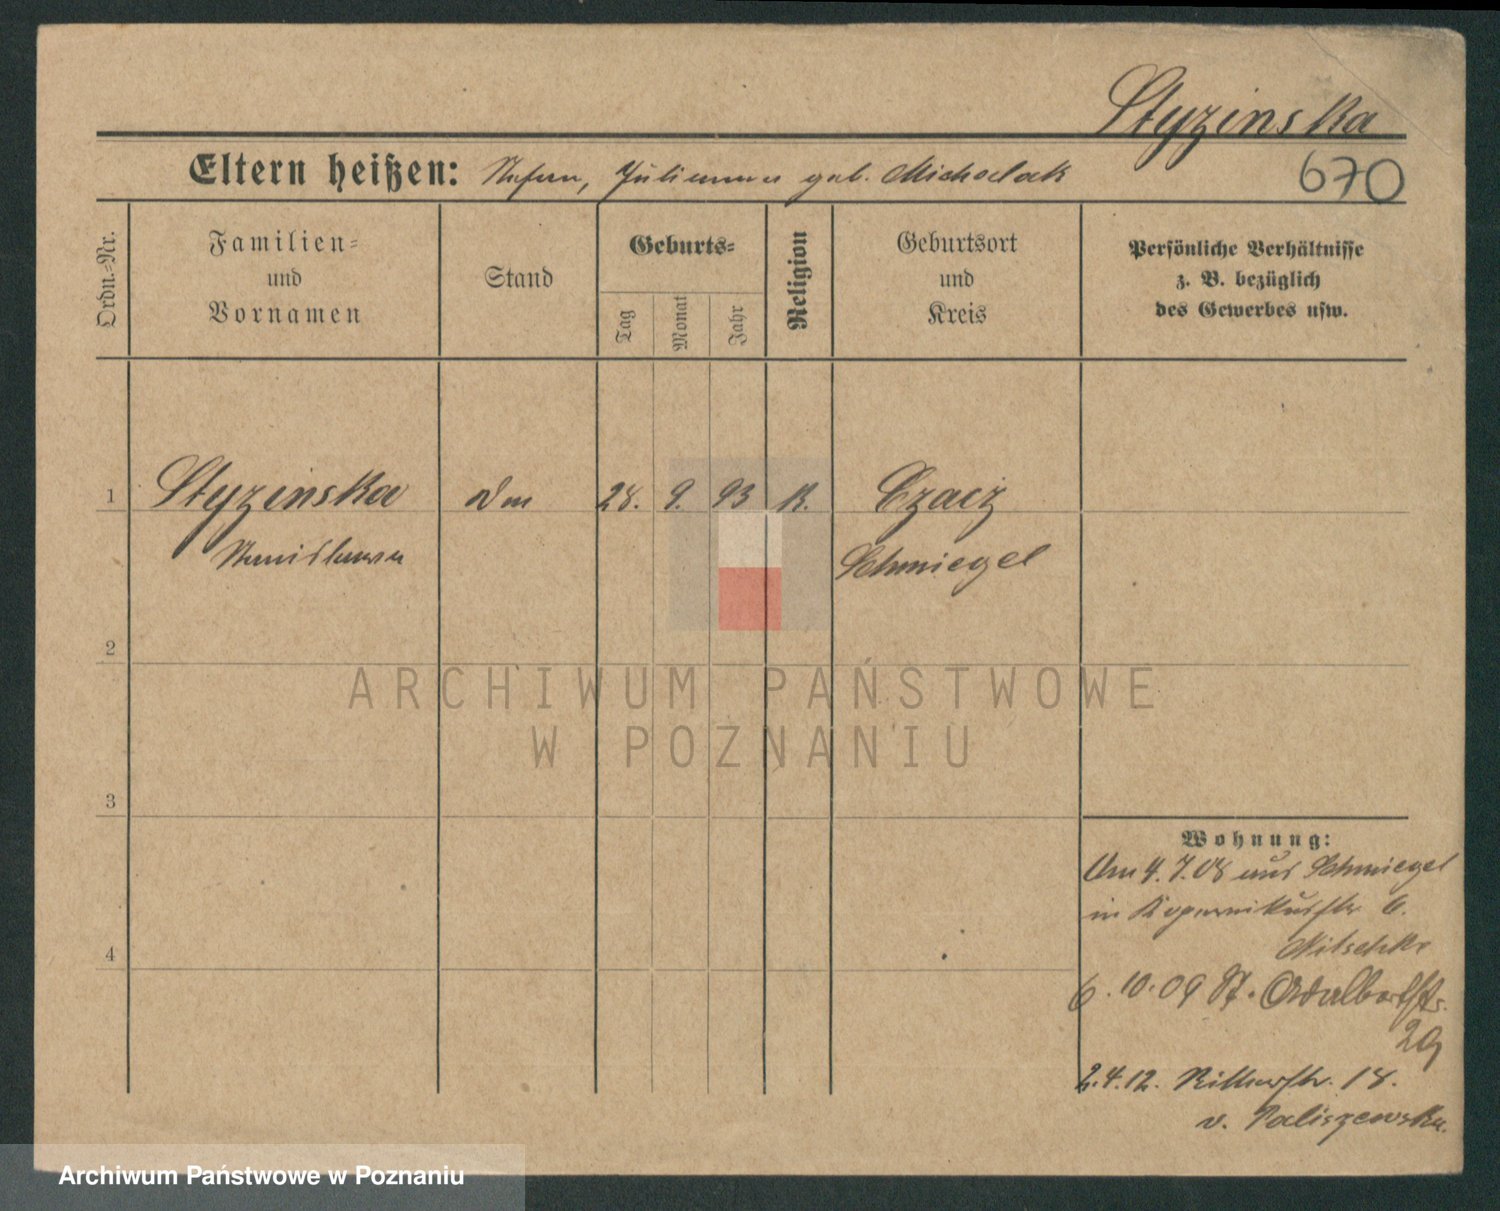 Styzinska
Eltern heißen: Stefan, Julianna geb. Michalak
670
Ordn.-Nr.
Familien-
und
Vornamen
Stand
Geburts-
Tag
Monat
Jahr
Religion
Geburtsort
und
Kreis
Persönliche Verhältnisse
z. B. bezüglich
des Gewerbes usw.
1 Styzinska 28. 9. 93 K. Czacz
Stanislawa Schmiegel
2
3
4
Wohnung:
Am 4.7.08 aus Schmiegel
in Kopernikusstr 6.
Nitschke
6.10.09 St. Adalbertstr.
29
2.4.12. Ritterstr. 18.
v. Paliszewska.
ARCHIWUM PAŃSTWOWE
W POZNANIU
Archiwum Państwowe w Poznaniu